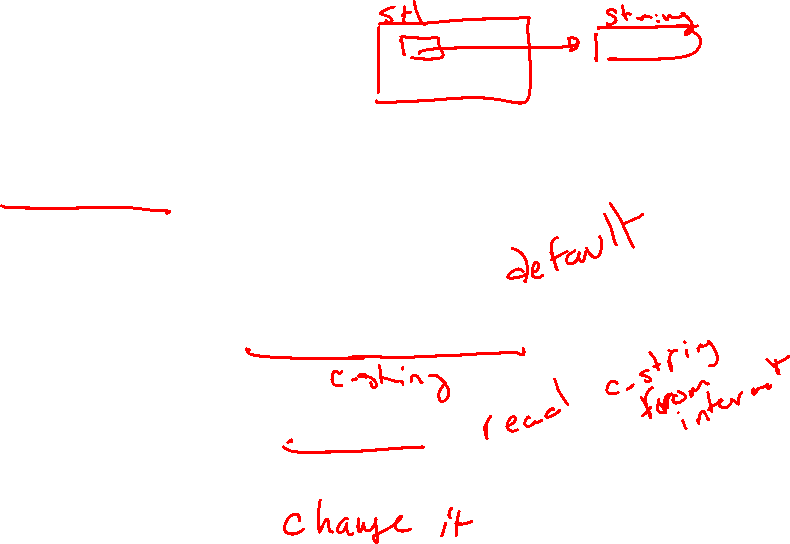 stl
string
default
c-string
read c-string
from
internet
change it